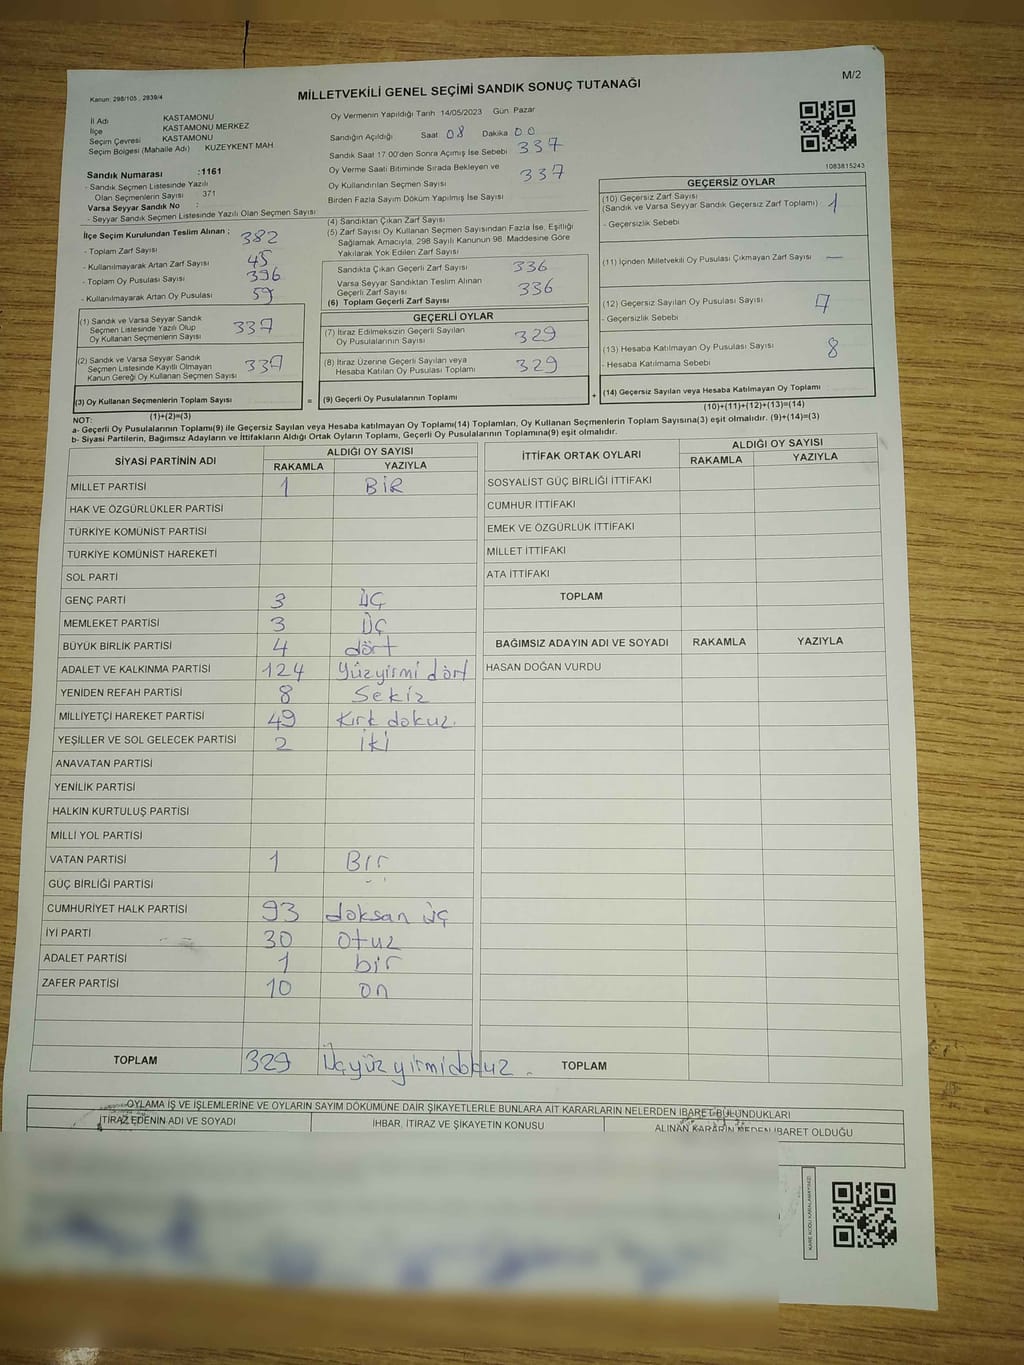 Kanun: 298/105 , 2839/4
MİLLETVEKİLİ GENEL SEÇİMİ SANDIK SONUÇ TUTANAĞI
M/2
İl Adı KASTAMONU
İlçe KASTAMONU MERKEZ
Seçim Çevresi KASTAMONU
Seçim Bölgesi (Mahalle Adı) KUZEYKENT MAH.
Sandık Numarası :1161
- Sandık Seçmen Listesinde Yazılı
Olan Seçmenlerin Sayısı 371
Varsa Seyyar Sandık No :
- Seyyar Sandık Seçmen Listesinde Yazılı Olan Seçmen Sayısı:
İlçe Seçim Kurulundan Teslim Alınan :
- Toplam Zarf Sayısı 382
- Kullanılmayarak Artan Zarf Sayısı 45
- Toplam Oy Pusulası Sayısı 396
- Kullanılmayarak Artan Oy Pusulası 59
(1) Sandık ve Varsa Seyyar Sandık
Seçmen Listesinde Yazılı Olup
Oy Kullanan Seçmenlerin Sayısı 337
(2) Sandık ve Varsa Seyyar Sandık
Seçmen Listesinde Kayıtlı Olmayan
Kanun Gereği Oy Kullanan Seçmen Sayısı 337
(3) Oy Kullanan Seçmenlerin Toplam Sayısı
(1)+(2)=(3)
Oy Vermenin Yapıldığı Tarih 14/05/2023 Gün Pazar
Sandığın Açıldığı Saat 08 Dakika 00
Sandık Saat 17.00'den Sonra Açımış İse Sebebi 337
Oy Verme Saati Bitiminde Sırada Bekleyen ve
Oy Kullandırılan Seçmen Sayısı 337
Birden Fazla Sayım Döküm Yapılmış İse Sayısı
(4) Sandıktan Çıkan Zarf Sayısı
(5) Zarf Sayısı Oy Kullanan Seçmen Sayısından Fazla İse, Eşitliği
Sağlamak Amacıyla, 298 Sayılı Kanunun 98. Maddesine Göre
Yakılarak Yok Edilen Zarf Sayısı
Sandıkta Çıkan Geçerli Zarf Sayısı 336
Varsa Seyyar Sandıktan Teslim Alınan
Geçerli Zarf Sayısı 336
(6) Toplam Geçerli Zarf Sayısı
GEÇERLİ OYLAR
(7) İtiraz Edilmeksizin Geçerli Sayılan
Oy Pusulalarının Sayısı 329
(8) İtiraz Üzerine Geçerli Sayılan veya
Hesaba Katılan Oy Pusulası Toplamı 329
= (9) Geçerli Oy Pusulalarının Toplamı
1083815243
GEÇERSİZ OYLAR
(10) Geçersiz Zarf Sayısı
(Sandık ve Varsa Seyyar Sandık Geçersiz Zarf Toplamı) 1
- Geçersizlik Sebebi
(11) İçinden Milletvekili Oy Pusulası Çıkmayan Zarf Sayısı —
(12) Geçersiz Sayılan Oy Pusulası Sayısı 7
- Geçersizlik Sebebi
(13) Hesaba Katılmayan Oy Pusulası Sayısı 8
- Hesaba Katılmama Sebebi
+ (14) Geçersiz Sayılan veya Hesaba Katılmayan Oy Toplamı
(10)+(11)+(12)+(13)=(14)
NOT:
a- Geçerli Oy Pusulalarının Toplamı(9) ile Geçersiz Sayılan veya Hesaba katılmayan Oy Toplamı(14) Toplamları, Oy Kullanan Seçmenlerin Toplam Sayısına(3) eşit olmalıdır. (9)+(14)=(3)
b- Siyasi Partilerin, Bağımsız Adayların ve İttifakların Aldığı Ortak Oyların Toplamı, Geçerli Oy Pusulalarının Toplamına(9) eşit olmalıdır.
SİYASİ PARTİNİN ADI ALDIĞI OY SAYISI
RAKAMLA YAZIYLA
MİLLET PARTİSİ 1 BİR
HAK VE ÖZGÜRLÜKLER PARTİSİ
TÜRKİYE KOMÜNİST PARTİSİ
TÜRKİYE KOMÜNİST HAREKETİ
SOL PARTİ
GENÇ PARTİ 3 ÜÇ
MEMLEKET PARTİSİ 3 ÜÇ
BÜYÜK BİRLİK PARTİSİ 4 dört
ADALET VE KALKINMA PARTİSİ 124 Yüzyirmi dört
YENİDEN REFAH PARTİSİ 8 Sekiz
MİLLİYETÇİ HAREKET PARTİSİ 49 Kırk dokuz.
YEŞİLLER VE SOL GELECEK PARTİSİ 2 İki
ANAVATAN PARTİSİ
YENİLİK PARTİSİ
HALKIN KURTULUŞ PARTİSİ
MİLLİ YOL PARTİSİ
VATAN PARTİSİ 1 Bir
GÜÇ BİRLİĞİ PARTİSİ
CUMHURİYET HALK PARTİSİ 93 doksan üç
İYİ PARTİ 30 otuz
ADALET PARTİSİ 1 bir
ZAFER PARTİSİ 10 on
TOPLAM 329 Üçyüz yirmidokuz.
İTTİFAK ORTAK OYLARI ALDIĞI OY SAYISI
RAKAMLA YAZIYLA
SOSYALİST GÜÇ BİRLİĞİ İTTİFAKI
CUMHUR İTTİFAKI
EMEK VE ÖZGÜRLÜK İTTİFAKI
MİLLET İTTİFAKI
ATA İTTİFAKI
TOPLAM
BAĞIMSIZ ADAYIN ADI VE SOYADI RAKAMLA YAZIYLA
HASAN DOĞAN VURDU
TOPLAM
OYLAMA İŞ VE İŞLEMLERİNE VE OYLARIN SAYIM DÖKÜMÜNE DAİR ŞİKAYETLERLE BUNLARA AİT KARARLARIN NELERDEN İBARET BULUNDUKLARI
İTİRAZ EDENİN ADI VE SOYADI İHBAR, İTİRAZ VE ŞİKAYETİN KONUSU ALINAN KARARIN NEDEN İBARET OLDUĞU
KARE KODU KARALAMAYINIZ!